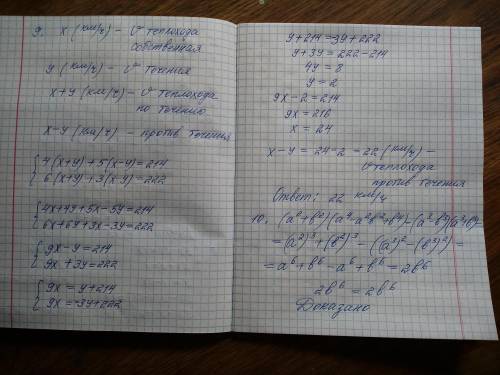 9. x (км/ч) – v теплохода
собственная
y (км/ч) – v течения
x+y (км/ч) – v теплохода
по течению
x–y (км/ч) – против течения
{4(x+y)+5(x-y)=214
{6(x+y)+3(x-y)=222
{4x+4y+5x-5y=214
{6x+6y+3x-3y=222
{9x-y=214
{9x+3y=222
{9x=y+214
{9x=-3y+222
y+214=-3y+222
y+3y=222-214
4y=8
y=2
9x-2=214
9x=216
x=24
x-y=24-2=22 (км/ч) –
v теплохода
против течения
Ответ: 22 км/ч
10. (a²+b²)(a⁴-a²b²+b⁴)-(a³-b³)(a³+b³)=
=(a²)³+(b²)³-((a³)²-(b³)²)=
=a⁶+b⁶-a⁶+b⁶=2b⁶
2b⁶=2b⁶
Доказано